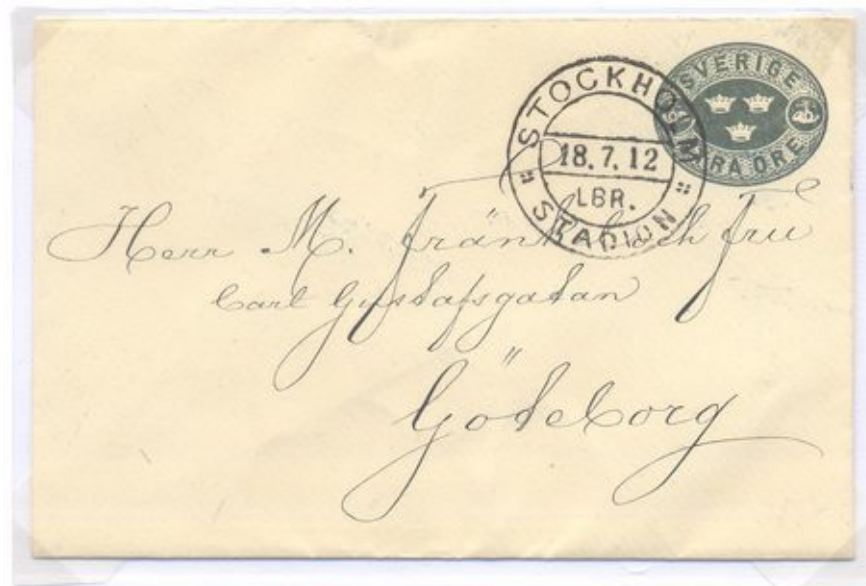 SVERIGE
FYRA ÖRE
STOCKHOLM
18.7.12
LBR.
STADION
Herr M. Fränkel och Fru
Carl Gustafsgatan
Göteborg